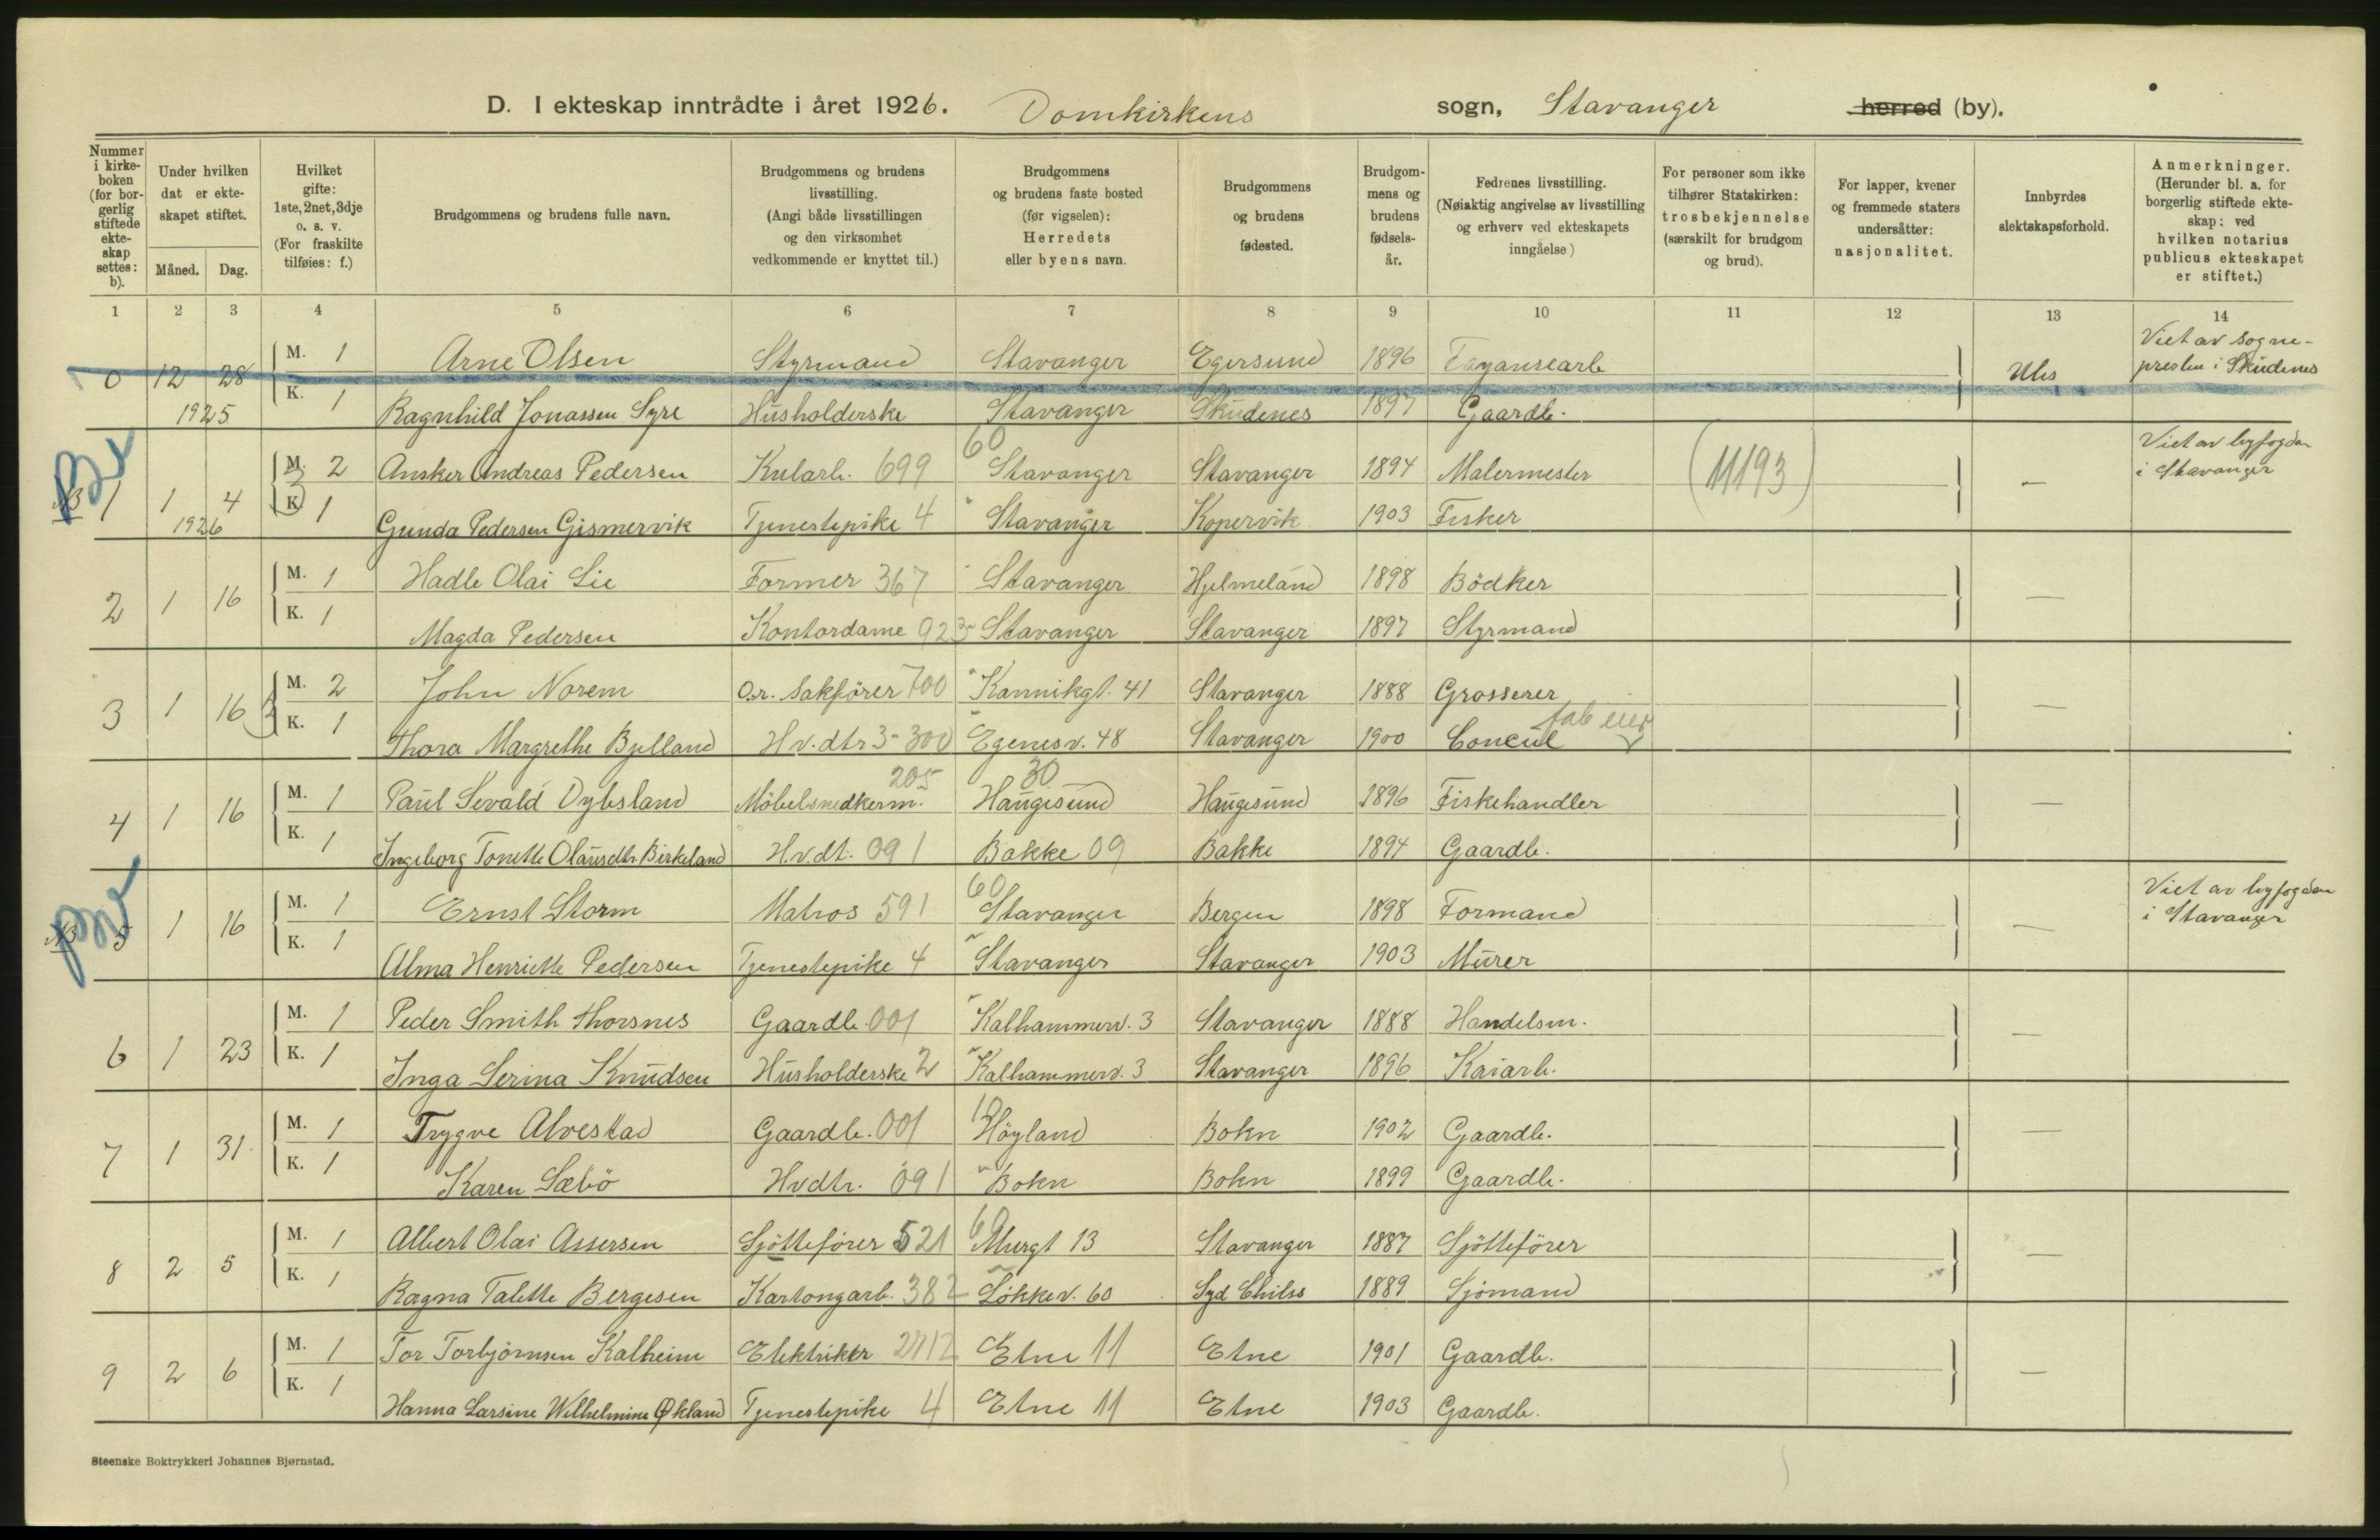 D. I ekteskap inntrådte i året 1926. Domkirkens sogn, Stavanger herred (by).
Nummer i kirke-boken (for bor-gerlig stiftede ekte-skap settes: b).
Under hvilken dat er ekte-skapet stiftet.
Måned. Dag.
Hvilket gifte: 1ste, 2net, 3dje o. s. v. (For fraskilte tilføies: f.)
Brudgommens og brudens fulle navn.
Brudgommens og brudens livsstilling. (Angi både livsstillingen og den virksomhet vedkommende er knyttet til.)
Brudgommens og brudens faste bosted (før vigselen): Herredets eller byens navn.
Brudgommens og brudens fødested.
Brudgom-mens og brudens fødsels-år.
Fedrenes livsstilling. (Nøiaktig angivelse av livsstilling og erhverv ved ekteskapets inngåelse)
For personer som ikke tilhører Statskirken: trosbekjennelse (særskilt for brudgom og brud).
For lapper, kvener og fremmede staters undersåtter: nasjonalitet.
Innbyrdes slektskapsforhold.
Anmerkninger. (Herunder bl. a. for borgerlig stiftede ekte-skap: ved hvilken notarius publicus ekteskapet er stiftet.)
1 2 3 4 5 6 7 8 9 10 11 12 13 14
0 12 28 M. 1 Arne Olsen Styrmand Stavanger Egersund 1896 Viet av sogne-presten i Skudenes
1925 K. 1 Ragnhild Jonassen Syre Husholderske Stavanger Skudenes 1897 Gaardb.
NB 1 1 4 M. 2 Ansker Andreas Pedersen Kularb. 699 60 Stavanger Stavanger 1894 Malermester (11193) — Viet av byfogden i Stavanger
1926 K 1 Gunda Pedersen Gismervik Tjenestepike 4 Stavanger Kopervik 1903 Fisker
2 1 16 M. 1 Hadle Olai Lie Former 367 Stavanger Hjelmeland 1898 Bödker —
K. 1 Magda Pedersen Kontordame 923 Stavanger Stavanger 1897 Styrmand
3 1 16 M. 2 John Norem O.r. Sakförer 700 Kannikgt. 41 Stavanger 1888 Grosserer —
K. 1 Thora Margrethe Bjelland H.v.dtr 3-300 Egenesv. 48 Stavanger 1900 Concul fab eier
4 1 16 M. 1 Paul Sevald Dybsland Möbelsnedkerm. 205 30 Haugesund Haugesund 1896 Fiskehandler —
K. 1 Ingeborg Tonette Olausdtr. Birkeland H.v.dt. 091 Bakke 09 Bakke 1894 Gaardb.
NB 5 1 16 M. 1 Ernst Storm Matros 591 60 Stavanger Bergen 1898 Formand — Viet av byfogden i Stavanger
K. 1 Alma Henriette Pedersen Tjenestepike 4 Stavanger Stavanger 1903 Murer
6 1 23 M. 1 Peder Smith Thorsnes Gaardb. 001 Kalhammerv. 3 Stavanger 1888 Handelsm. —
K. 1 Inga Serina Knudsen Husholderske 2 Kalhammerv. 3 Stavanger 1896 Kaiarb.
7 1 31. M. 1 Trygve Alvestad Gaardb. 001 10 Höyland Bokn 1902 Gaardb. —
K. 1 Karen Sæbö Hvdtr. 091 Bokn Bokn 1899 Gaardb.
8 2 5 M. 1 Albert Olai Assersen Sjötteförer 521 60 Murgt 13 Stavanger 1887 Sjötteförer —
K. 1 Ragna Talette Bergesen Kartongarb. 382 Lökkev. 60 Syd 1889 Sjömand
9 2 6 M. 1 Tor Torbjörnsen Kalheim Elektriker 2712 Etne 11 Etne 1901 Gaardb. —
K. 1 Hanna Larsine Wilhelmine Økland Tjenestepike 4 Etne 11 Etne 1903 Gaardb.
Steenske Boktrykkeri Johannes Bjørnstad.